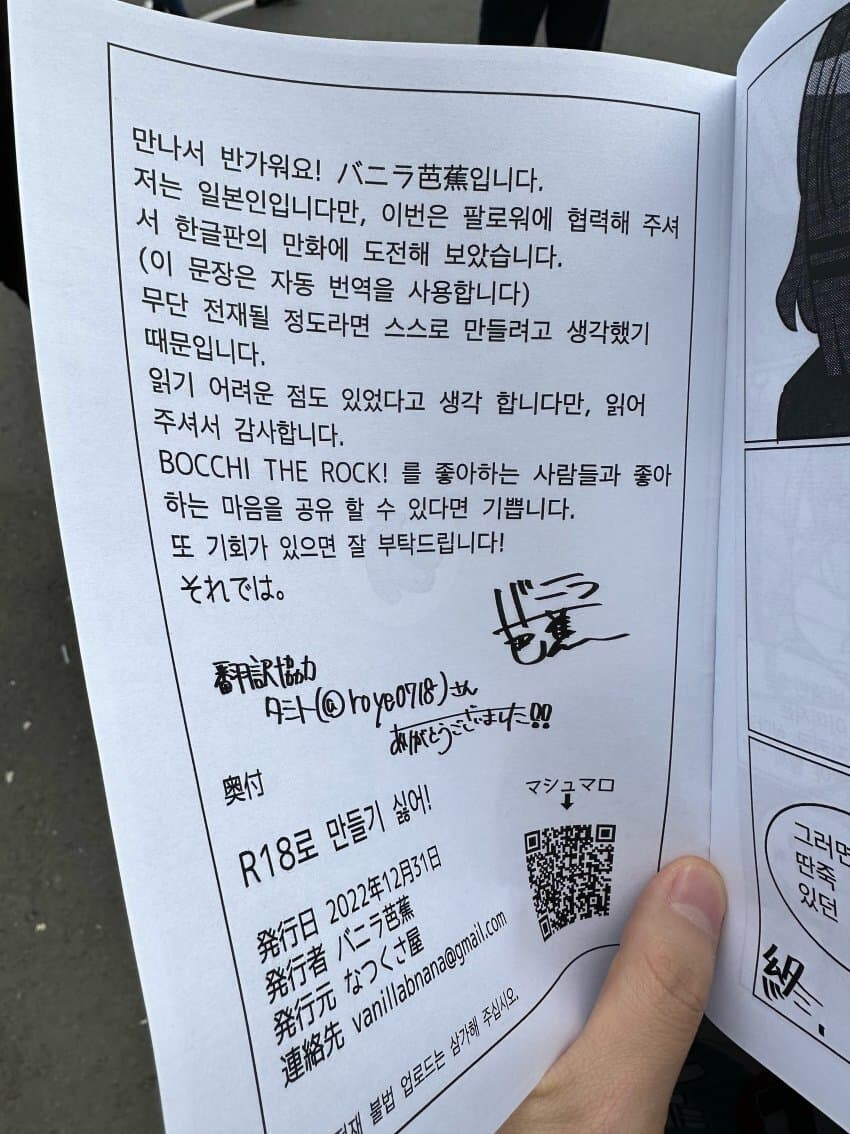 만나서 반가워요! バニラ芭蕉입니다.
저는 일본인입니다만, 이번은 팔로워에 협력해 주셔
서 한글판의 만화에 도전해 보았습니다.
(이 문장은 자동 번역을 사용합니다)
무단 전재될 정도라면 스스로 만들려고 생각했기
때문입니다.
읽기 어려운 점도 있었다고 생각 합니다만, 읽어
주셔서 감사합니다.
BOCCHI THE ROCK! 를 좋아하는 사람들과 좋아
하는 마음을 공유 할 수 있다면 기쁩니다.
또 기회가 있으면 잘 부탁드립니다!
それでは。
バニラ
芭蕉
翻訳協力
タミト(@roye0718)さん
ありがとうございました!!
奥付
R18로 만들기 싫어!
マシュマロ
発行日 2022年12月31日
発行者 バニラ芭蕉
発行元 なつくさ屋
連絡先 vanillabnana@gmail.com
전재 불법 업로드는 삼가해 주십시오.
그러면
딴죽
있던